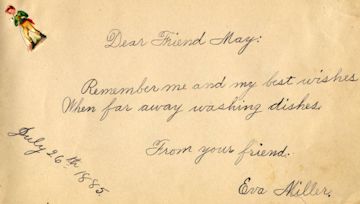 Dear Friend May:
Remember me and my best wishes
When far away washing dishes.
From your friend.
Eva Miller.
July 26th 1885.